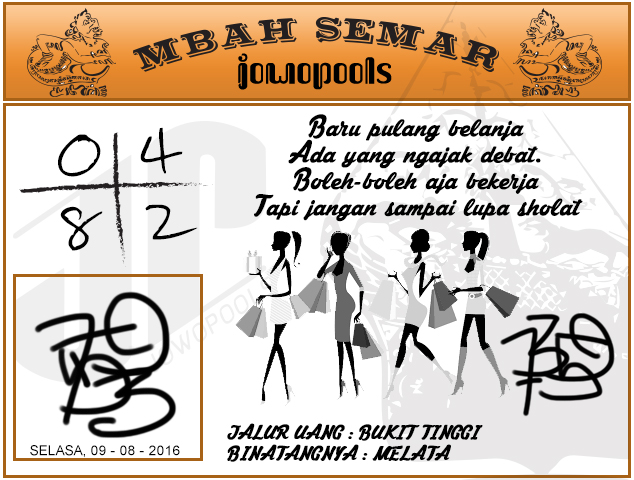 MBAH SEMAR
jowopools
0 4
8 2
Baru pulang belanja
Ada yang ngajak debat.
Boleh-boleh aja bekerja
Tapi jangan sampai lupa sholat
SELASA, 09 - 08 - 2016
JALUR UANG : BUKIT TINGGI
BINATANGNYA : MELATA